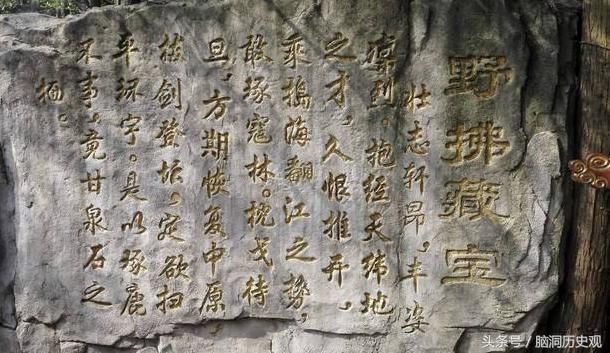 野拂藏宝
壮志轩昂，丰姿
凛列。抱经天纬地
之才，久恨推开，
乘捣海翻江之势，
敢琢寇林。枕戈待
旦，方期恢复中原，
拔剑登坛，定欲扫
平环宇。是以琢鹿
不事，竟甘泉石之
栖。
头条号 / 脑洞历史观